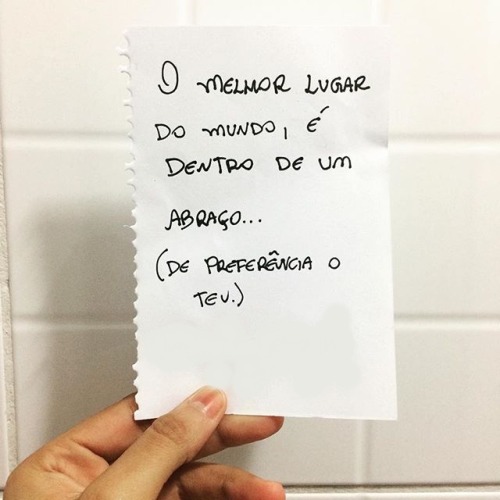 O MELHOR LUGAR
DO MUNDO, É
DENTRO DE UM
ABRAÇO...
(DE PREFERÊNCIA O
TEU.)